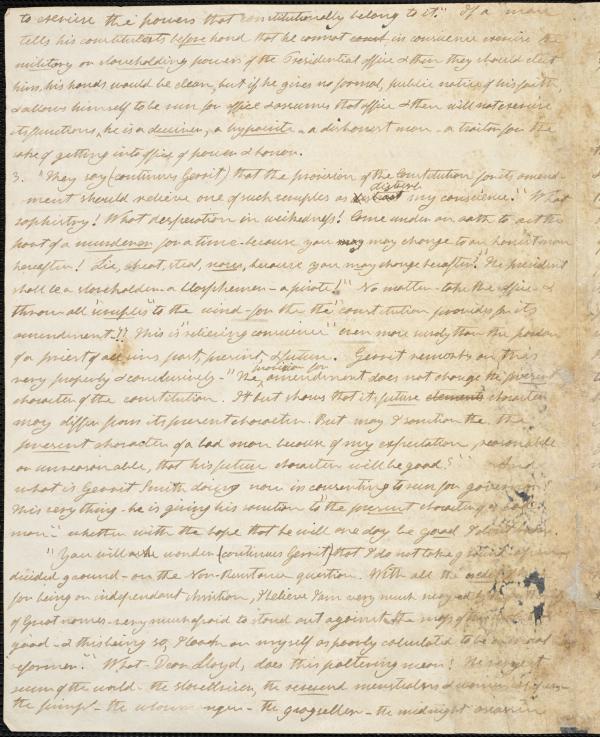 to exercise the powers that constitutionally belong to it." If a man
tells his constituents before hand that he cannot in conscience exercise the
military or slaveholding powers of the Presidential office & then they should elect
him, his hands would be clean, but if he gives no formal, public notice of his faith,
& allows himself to be run for office & assumes that office & then will not exercise
its functions, he is a deceiver, a hypocrite - a dishonest man - a traitor for the
sake of getting into office of power & honor.
3. "They say (continues Gerrit) that the provision of the Constitution for its amend-
ment should relieve one of such scruples as disturb my conscience." What
sophistry! What desperation in wickedness! Come under an oath to act the
part of a murderer for a time - because you may may change to an honest man
hereafter! Lie, cheat, steal, now, because you may change hereafter! "The president
shall be a slaveholder - a blasphemer - a pirate!" No matter - take the office &
throw all "scruples" to the wind - for the the "constitution provides for its
amendment"!! This is "relieving conscience" even more wordy than the pardon
of a priest of all sins past, present, & future. Gerrit remarks on this
very properly & conclusively - "The provision for amendment does not change the present
character of the constitution. It but shows that its future elements character
may differ from its present character. But may I sanction the, the
present character of a bad man because of my expectation, reasonable
or unreasonable, that his future character will be good?" And
what is Gerrit Smith doing now in consenting to run for governor?
This very thing - he is giving his sanction to "the present character of a bad
man" - whether with the hope that he will one day be good I don't
"You will wonder (continues Gerrit) that I do not take
decided ground - on the Non-Resistance question. With all the
for being an independant christian, I believe I am very much
of Great names - very much afraid to stand out against the mass of the
good - & this being so, I look on myself as poorly calculated to be a
reformer." What - Dear Lloyd, does this paltering mean! The
scum of the world - the slaveholder, the
the pimp - the whoremonger - the grogseller - the midnight assassin